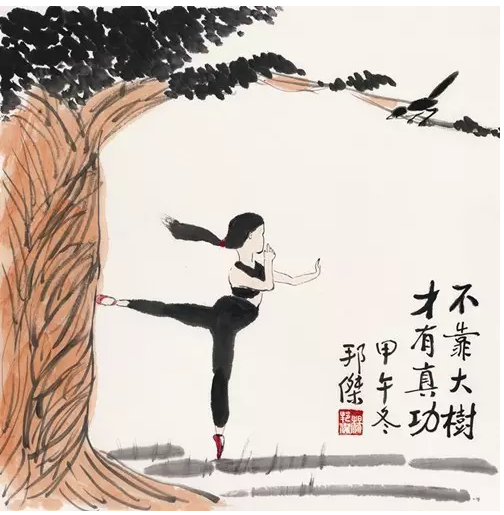 不靠大樹
才有真功
甲午冬
邦傑